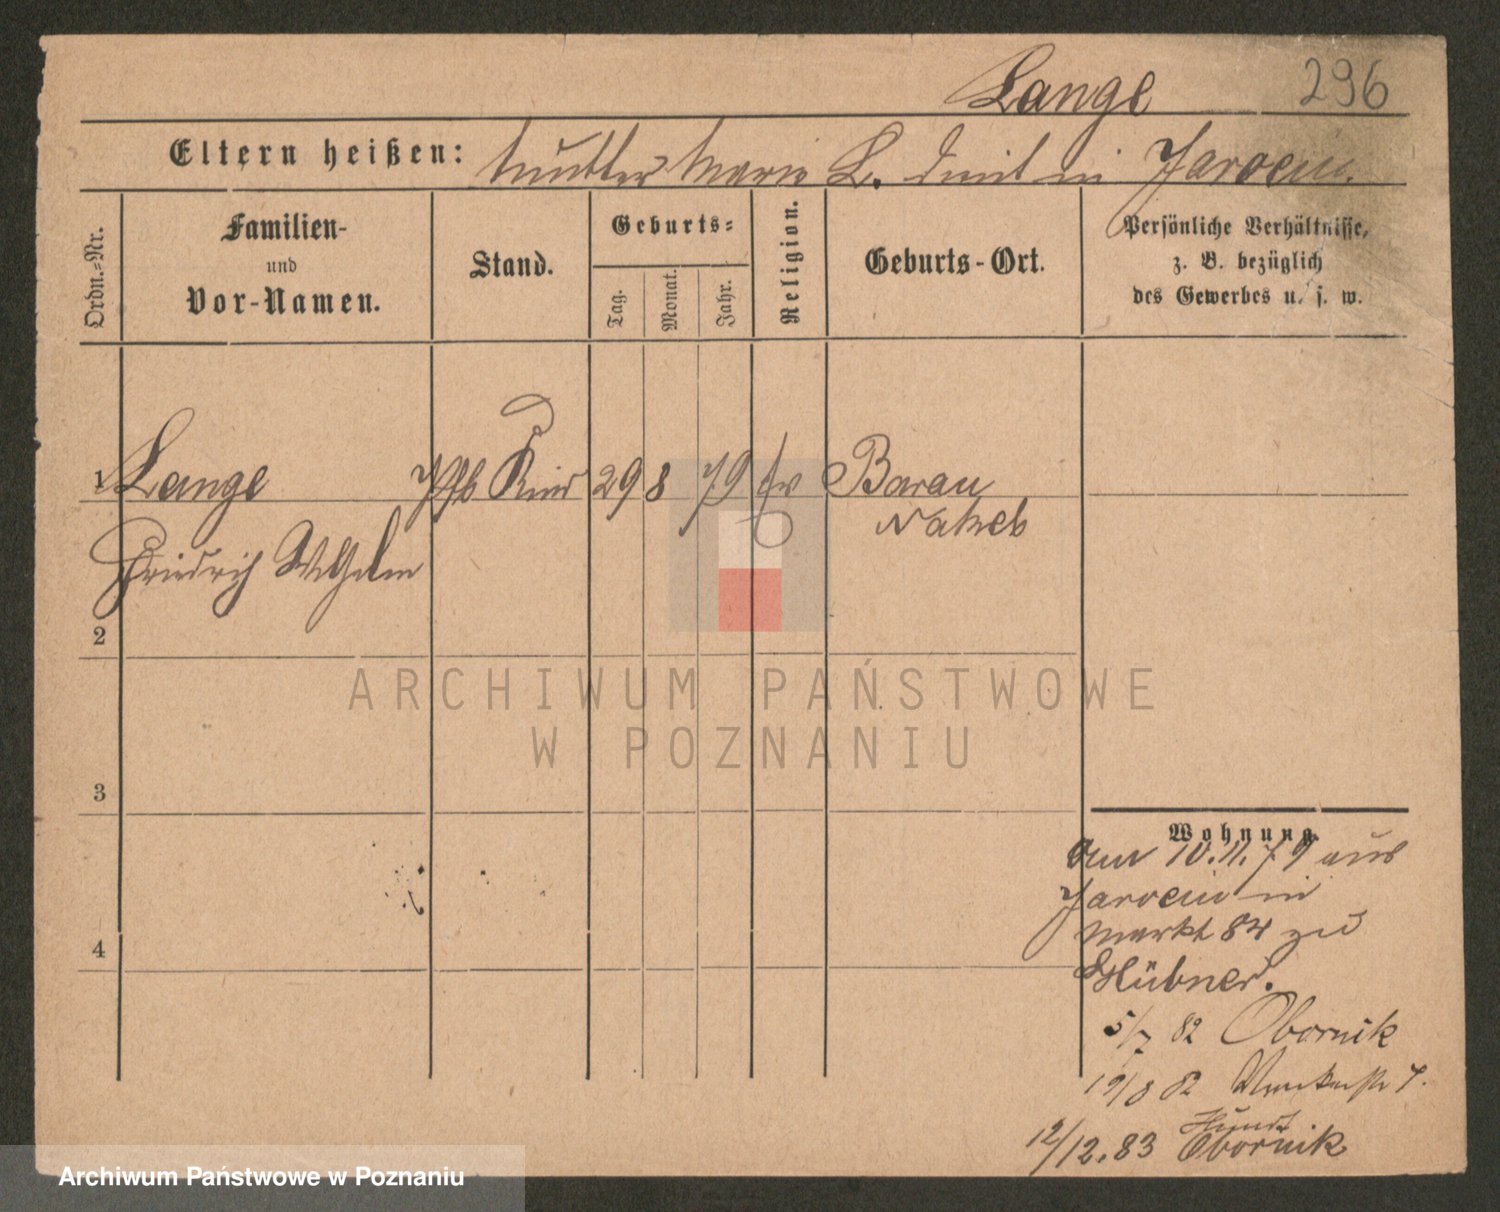 Lange 296
Eltern heißen: Mutter Marie L. dient in Jarocin.
Ordn.-Nr.
Familien-
und
Vor-Namen.
Stand.
Geburts-
Tag.
Monat.
Jahr.
Religion.
Geburts-Ort.
Persönliche Verhältnisse,
z. B. bezüglich
des Gewerbes u. s. w.
1 Lange Kind 29 8 79 ev Baran
Nakeb
Friedrich Wilhelm
2
3
4
Wohnung.
Am 10.11.79 aus
Jarocin in
Markt 84 zu
Hübner.
5/7 82 Obornik
19/8 82 7.
Hundt
12/12.83 Obornik
ARCHIWUM PAŃSTWOWE
W POZNANIU
Archiwum Państwowe w Poznaniu